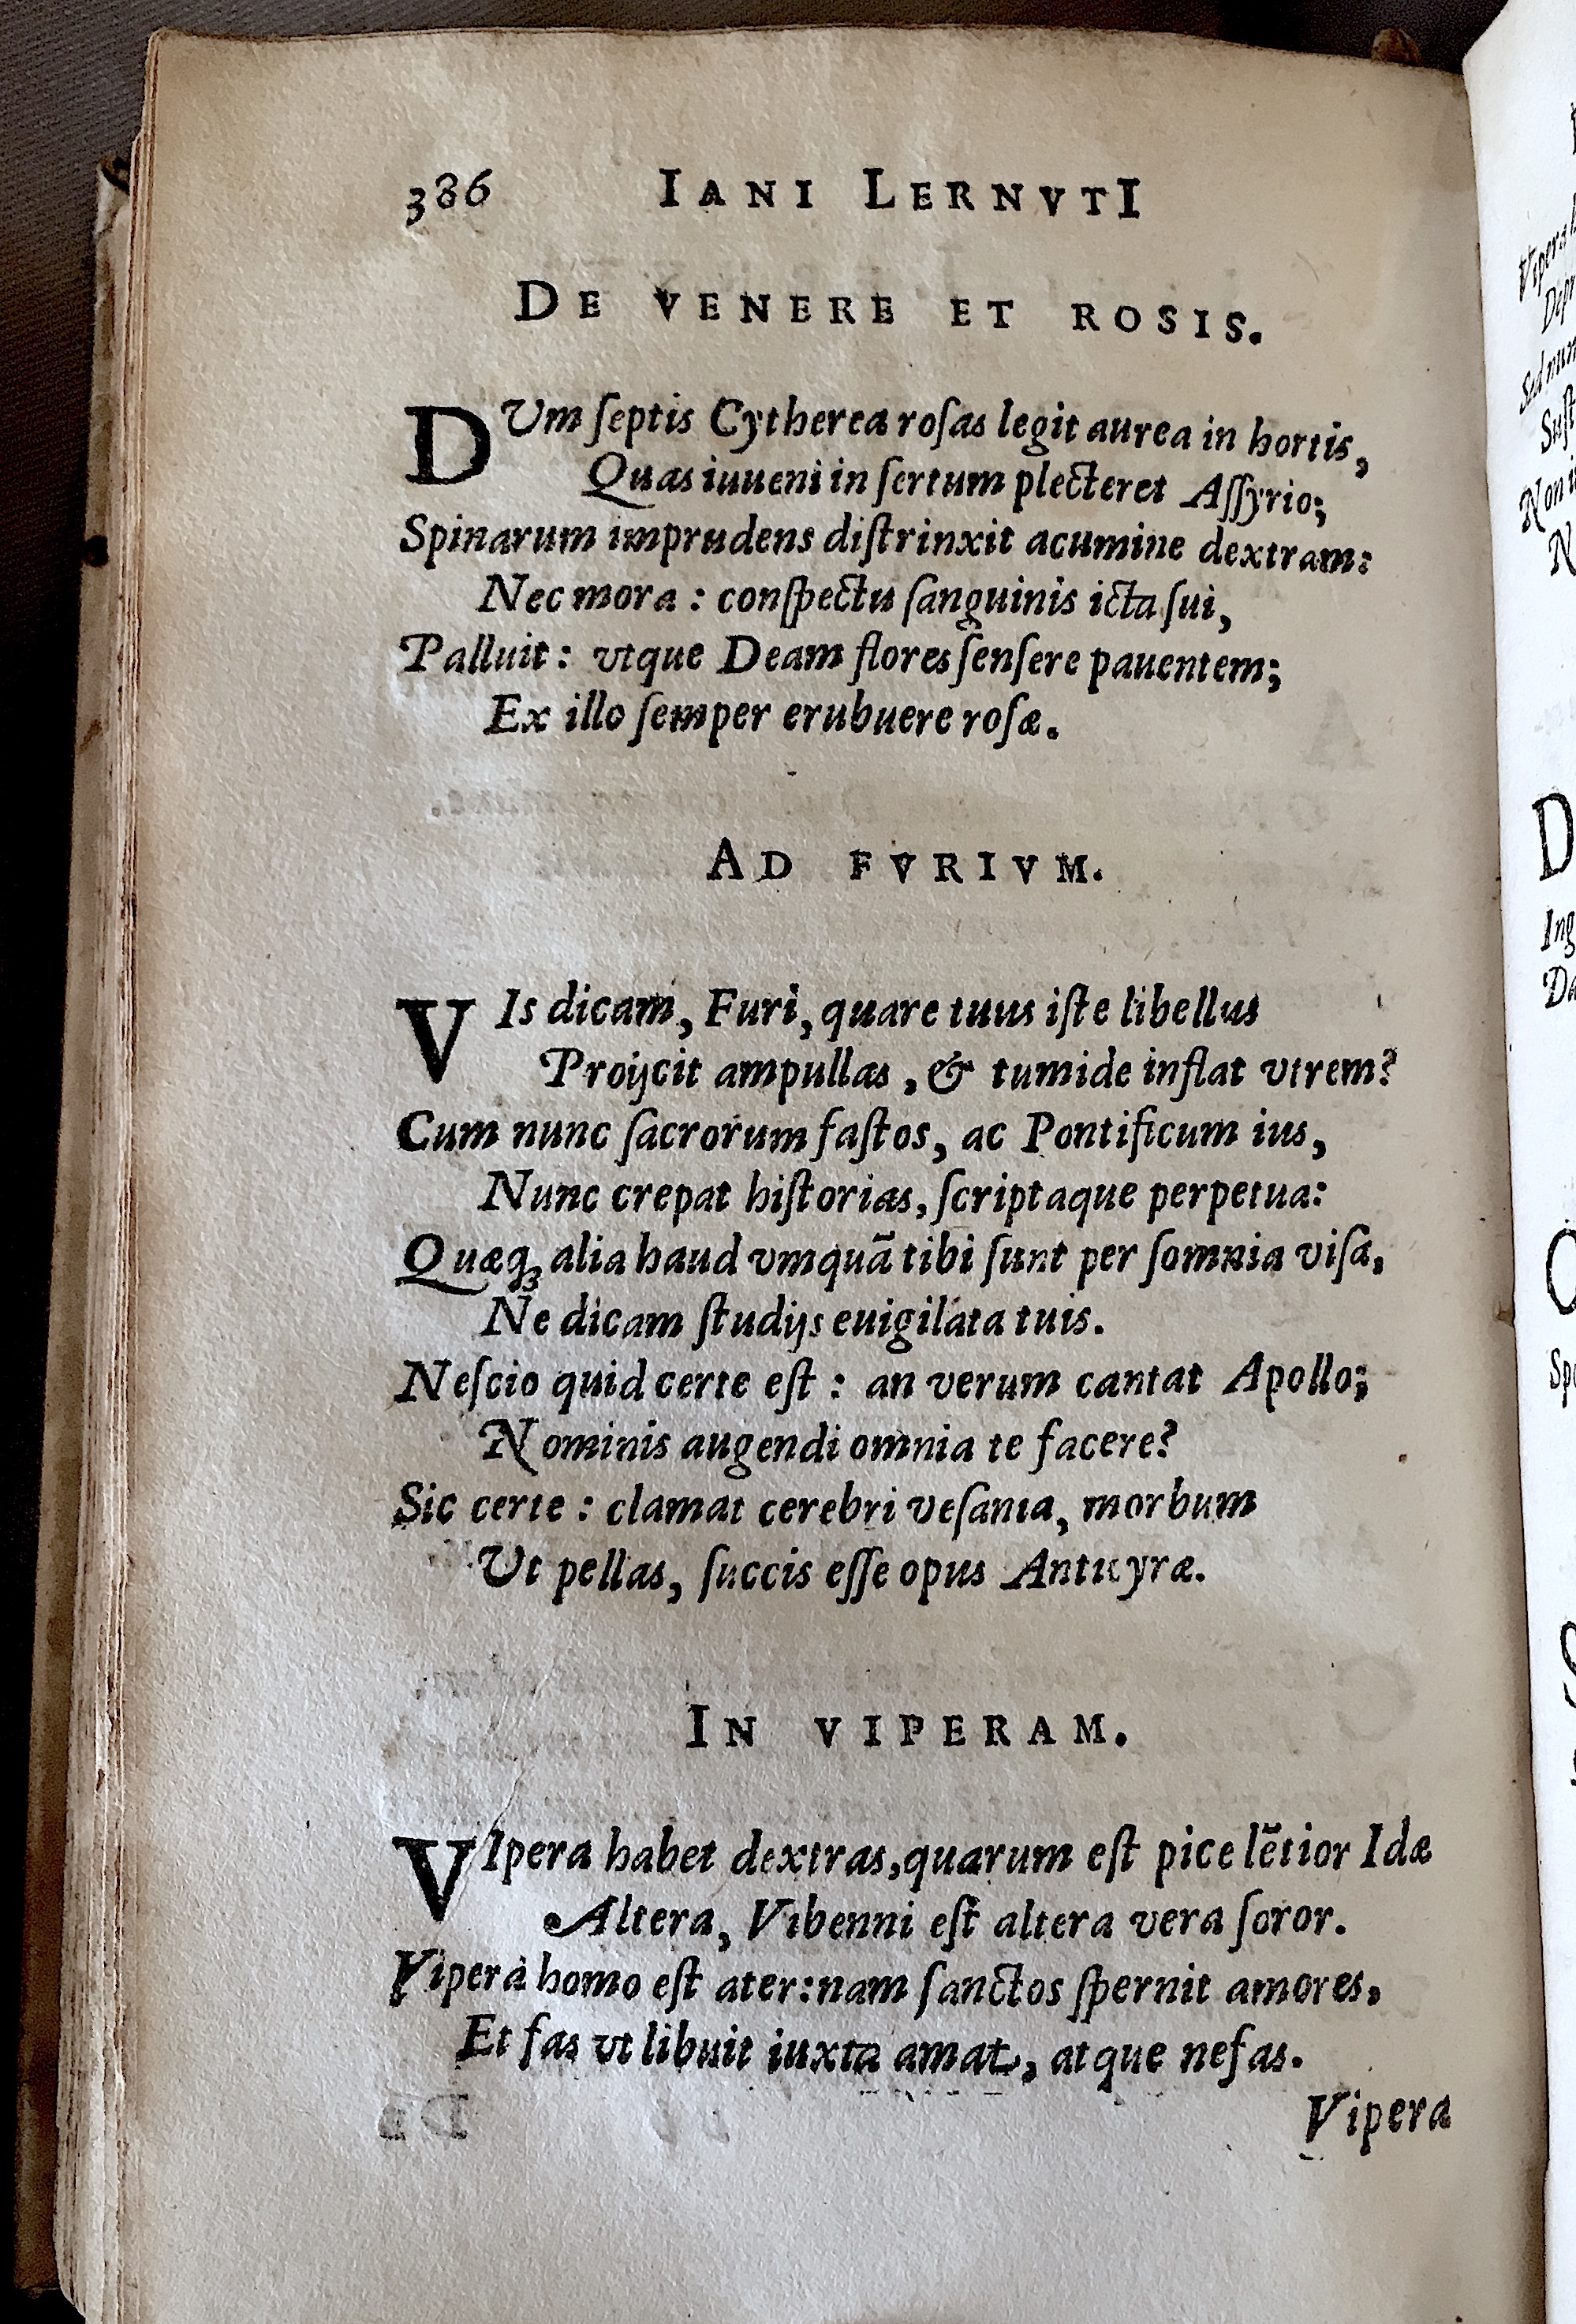 386 IANI LERNVTI
DE VENERE ET ROSIS.
DUm ſeptis Cytherea roſas legit aurea in hortis,
Quas iuueni in ſertum plecteret Aſſyrio;
Spinarum imprudens diſtrinxit acumine dextram:
Nec mora : conſpectu ſanguinis icta ſui,
Palluit : vtque Deam flores ſenſere pauentem;
Ex illo ſemper erubuere roſæ.
AD FVRIVM.
VIs dicam, Furi, quare tuus iſte libellus
Proijcit ampullas, & tumide inflat vtrem?
Cum nunc ſacrorum faſtos, ac Pontificum ius,
Nunc crepat hiſtorias, ſcriptaque perpetua:
Quæqꝫ alia haud vmquã tibi ſunt per ſomnia viſa,
Ne dicam ſtudijs euigilata tuis.
Neſcio quid certe eſt : an verum cantat Apollo;
Nominis augendi omnia te facere?
Sic certe : clamat cerebri veſania, morbum
Ut pellas, ſuccis eſſe opus Anticyræ.
IN VIPERAM.
VIpera habet dextras, quarum eſt pice lẽtior Idæ
Altera, Vibenni eſt altera vera ſoror.
Vipera homo eſt ater: nam ſanctos ſpernit amores,
Et fas vt libuit iuxta amat, atque nefas.
Vipera